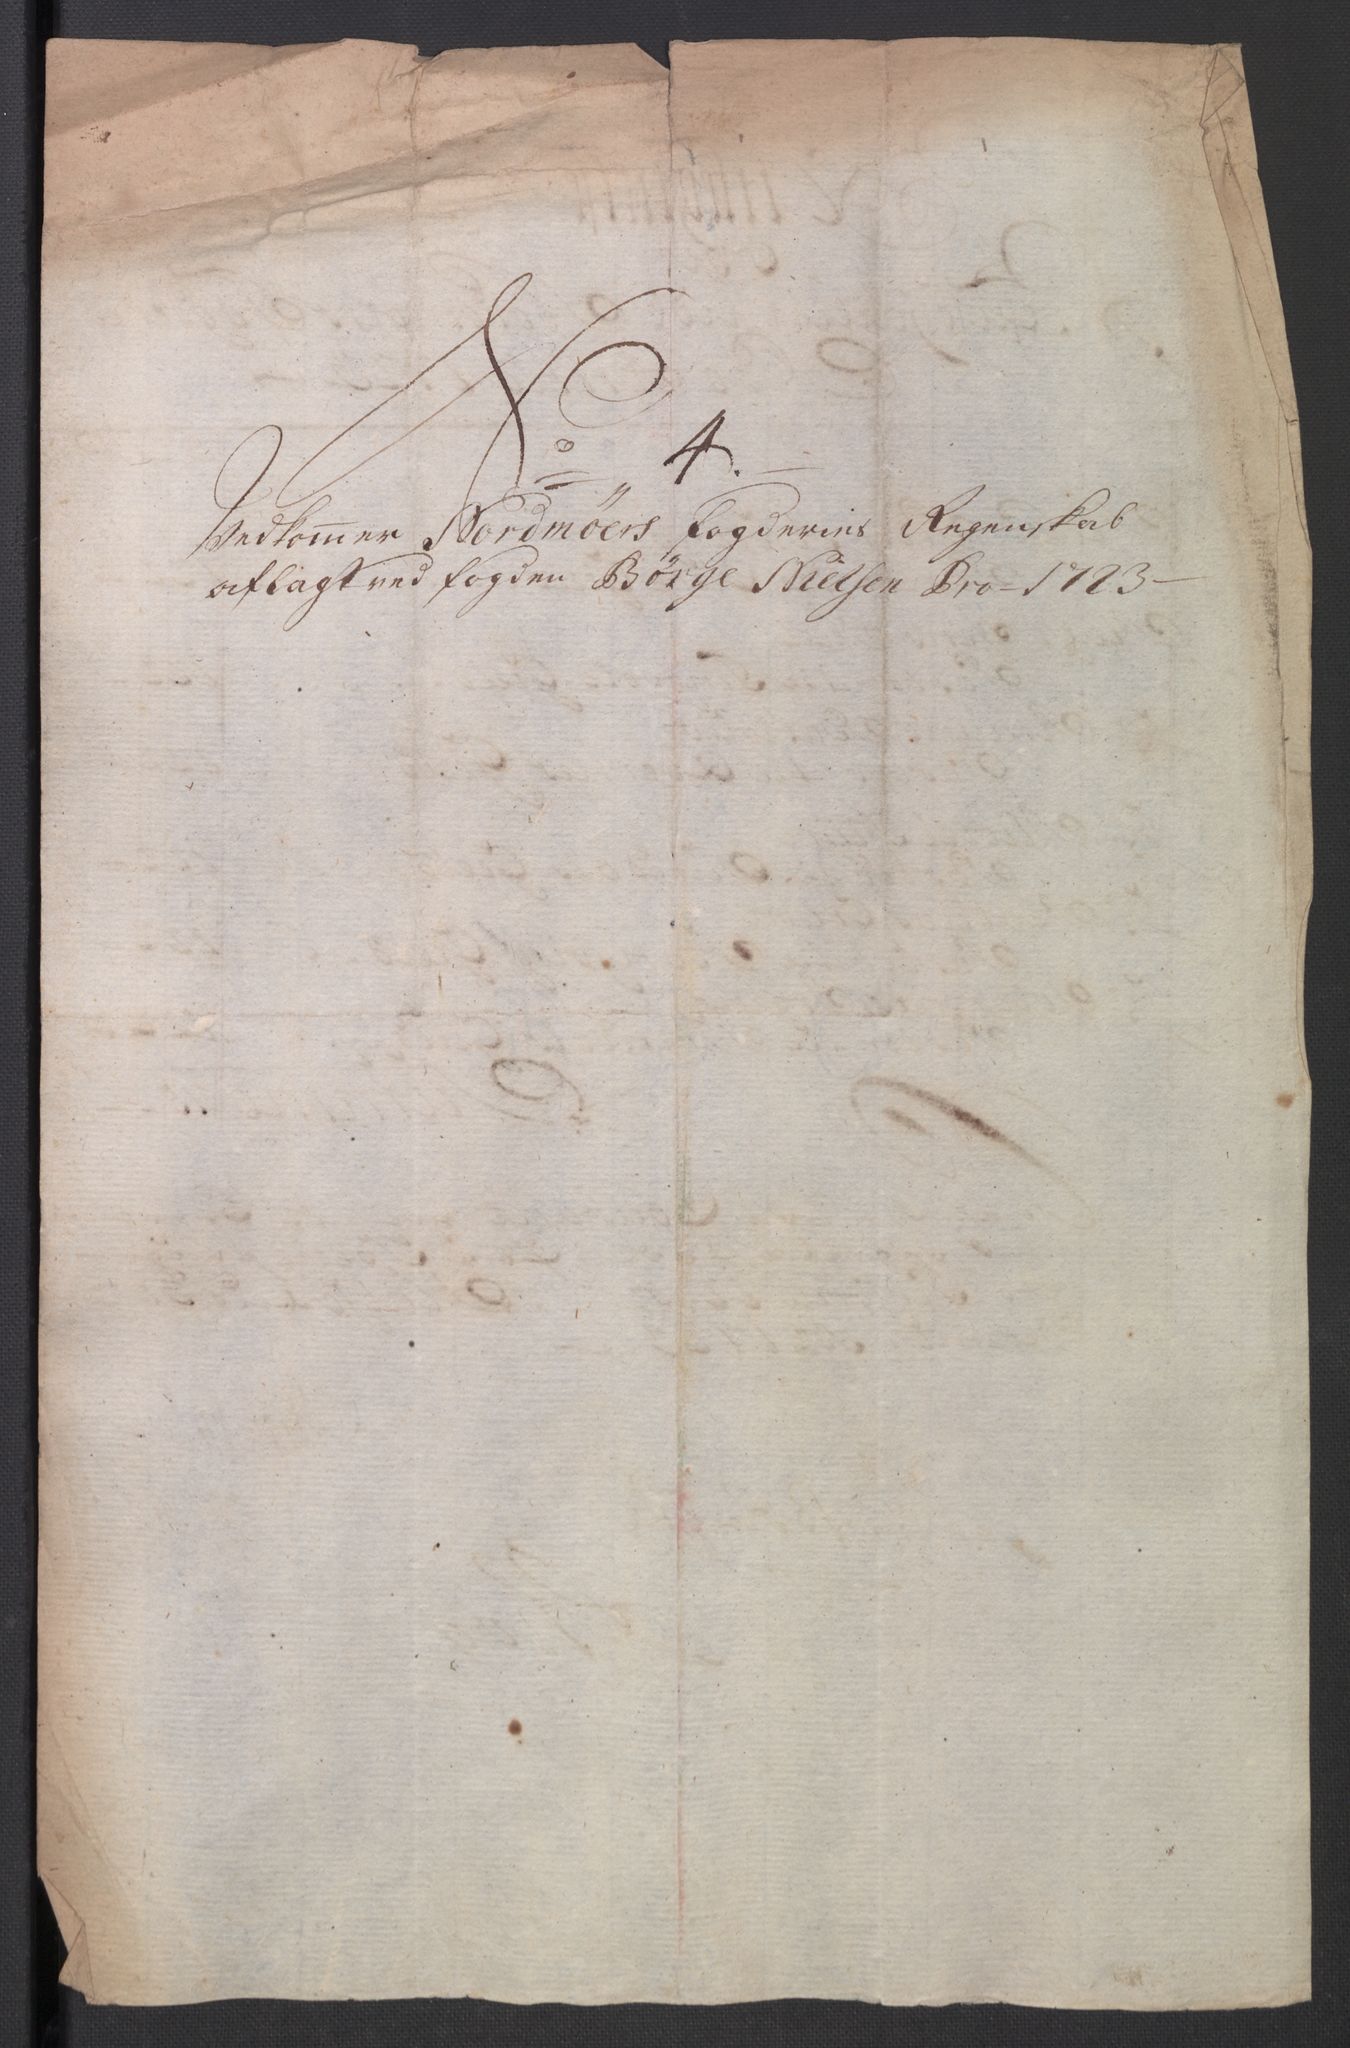 No 4.
Vedkom̄er Nordmöers fogderies Regenskab
aflagt ved fogden Börge Nielsen Pro – 1723 –